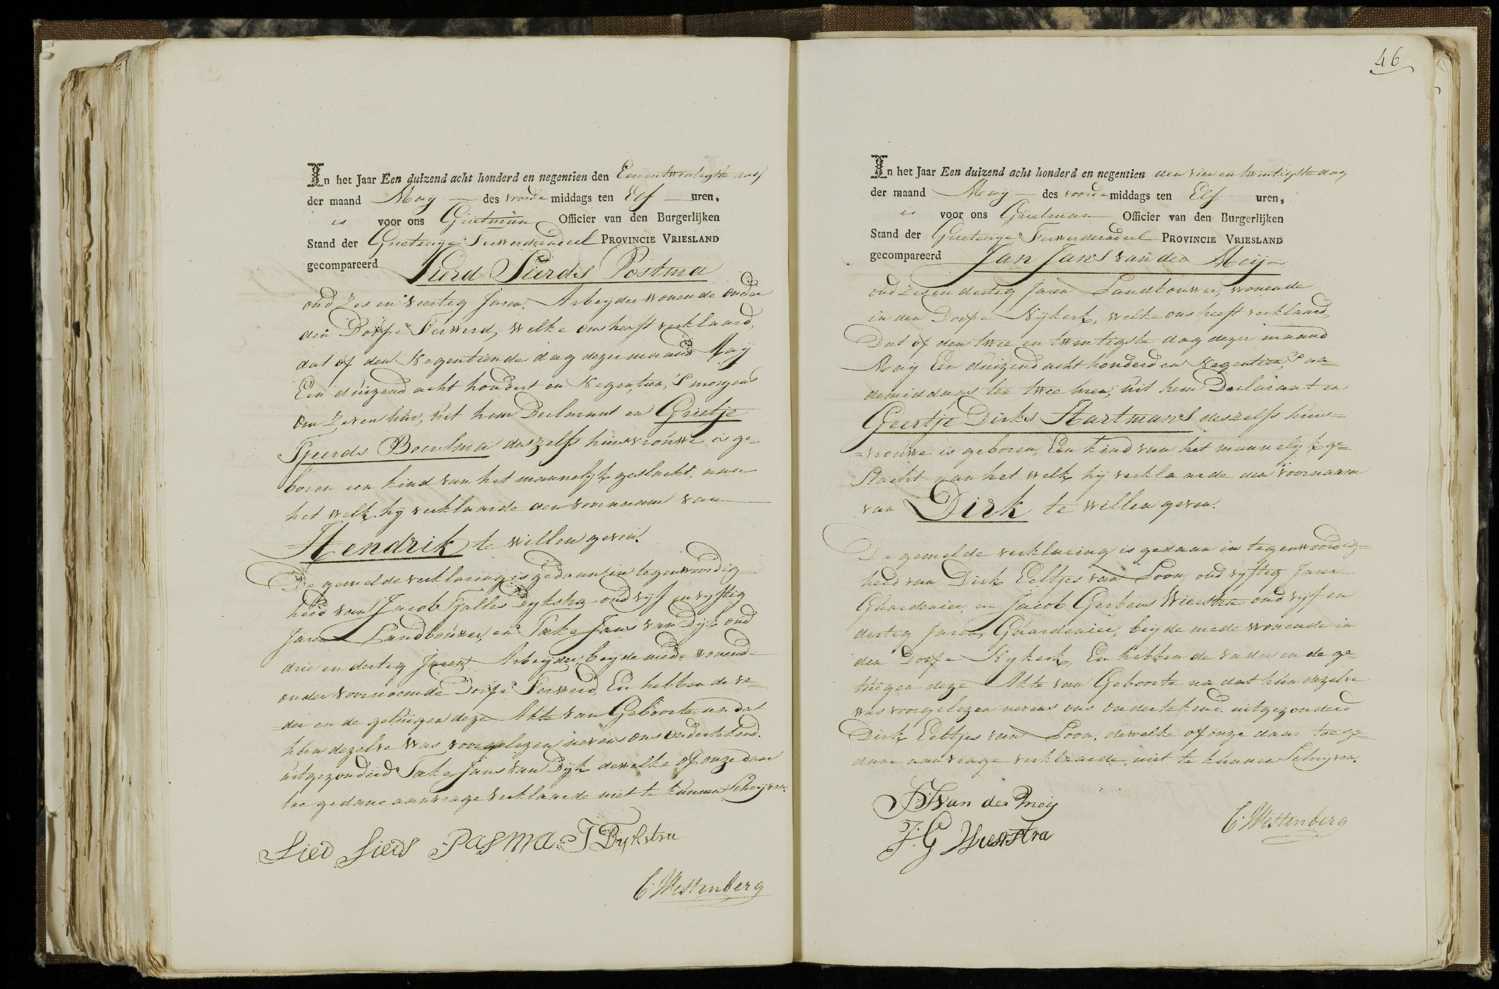 In het Jaar Een duizend acht honderd en negentien den Eenentwentigste dag
der maand May des voorde middags ten Elf uren,
is voor ons Grietman Officier van den Burgerlijken
Stand der Grietenye Ferwerderadeel PROVINCIE VRIESLAND
gecompareerd Sierd Sierds Postma
oud Zes en veertig Jaren, Arbeyder wonende onder
den Dorpe Ferwerd, welke ons heeft verklaard,
dat op den Negentiende dag dezer maand May
Een duizend acht hondert en Negentien, 's morgens
om Zeven Uur, uit hem Declarant en Grietje
Tjeerds Boersma deszelfs huisvrouwe, is ge-
boren een kind van het mannelijk geslacht, aan
het welk hij verklaarde den voornaam van
Hendrik te willen geven.
De gemelde verklaring is gedaan in tegenwoordig-
heid van Jacob Tjallis Dykstra oud vijf en vijftig
Jaren Landbouwer, en Take Jans van Dijk oud
drie en dertig Jaren Arbeyder, beyde mede wonend
onder voornoemde Dorpe Ferwerd, En hebben de va-
der en de getuigen deze Akte van Geboorte na dat
hun dezelve was voorgelezen nevens ons ondertekend.
uitgezonderd Take Jans van Dijk dewelke op onze daar
toe gedane aanvrage verklaarde niet te kunnen Schrijven.
Sierd Sierds Posma J T Dykstra
C: Westenberg
46
In het Jaar Een duizend acht honderd en negentien den vier en twintigste dag
der maand May des voorde middags ten Elf uren,
is voor ons Grietman Officier van den Burgerlijken
Stand der Grietenye Ferwerderadeel PROVINCIE VRIESLAND
gecompareerd Jan Jans van der Meij
oud en dertig Jaren Landbouwer, wonende
in den Dorpe Nijkerk, welke ons heeft verklaard,
Dat op den twee en twintigste dag dezer maand
May Een duizend acht honderd en Negentien, 's na-
demiddags te twee uren, uit hem Declarant en
Geertje Dirks Hartmans deszelfs huis-
vrouwe is geboren, Een kind van het mannelijk ge-
slacht aan het welk hij verklaarde den voornaam
van Dirk te willen geven.
De gemelde verklaring is gedaan in tegenwoordig-
heid van Dirk Eeltjes van Loon, oud vijftig Jaren
Guardenier, en Jacob Gerbens Wierstra oud vijf en
dertig Jaren, Guardenier, beyde mede wonende in
den Dorpe Nijkerk, En hebben de vader en de ge-
tuigen deze Akte van Geboorte na dat hun dezelve
was voorgelezen nevens ons ondertekend. uitgezonderd
Dirk Eeltjes van Loon, dewelke op onze daar toe ge-
dane aanvrage verklaarde, niet te kunnen Schrijven.
J: J: van der Meij
J: G Wierstra
C: Westenberg